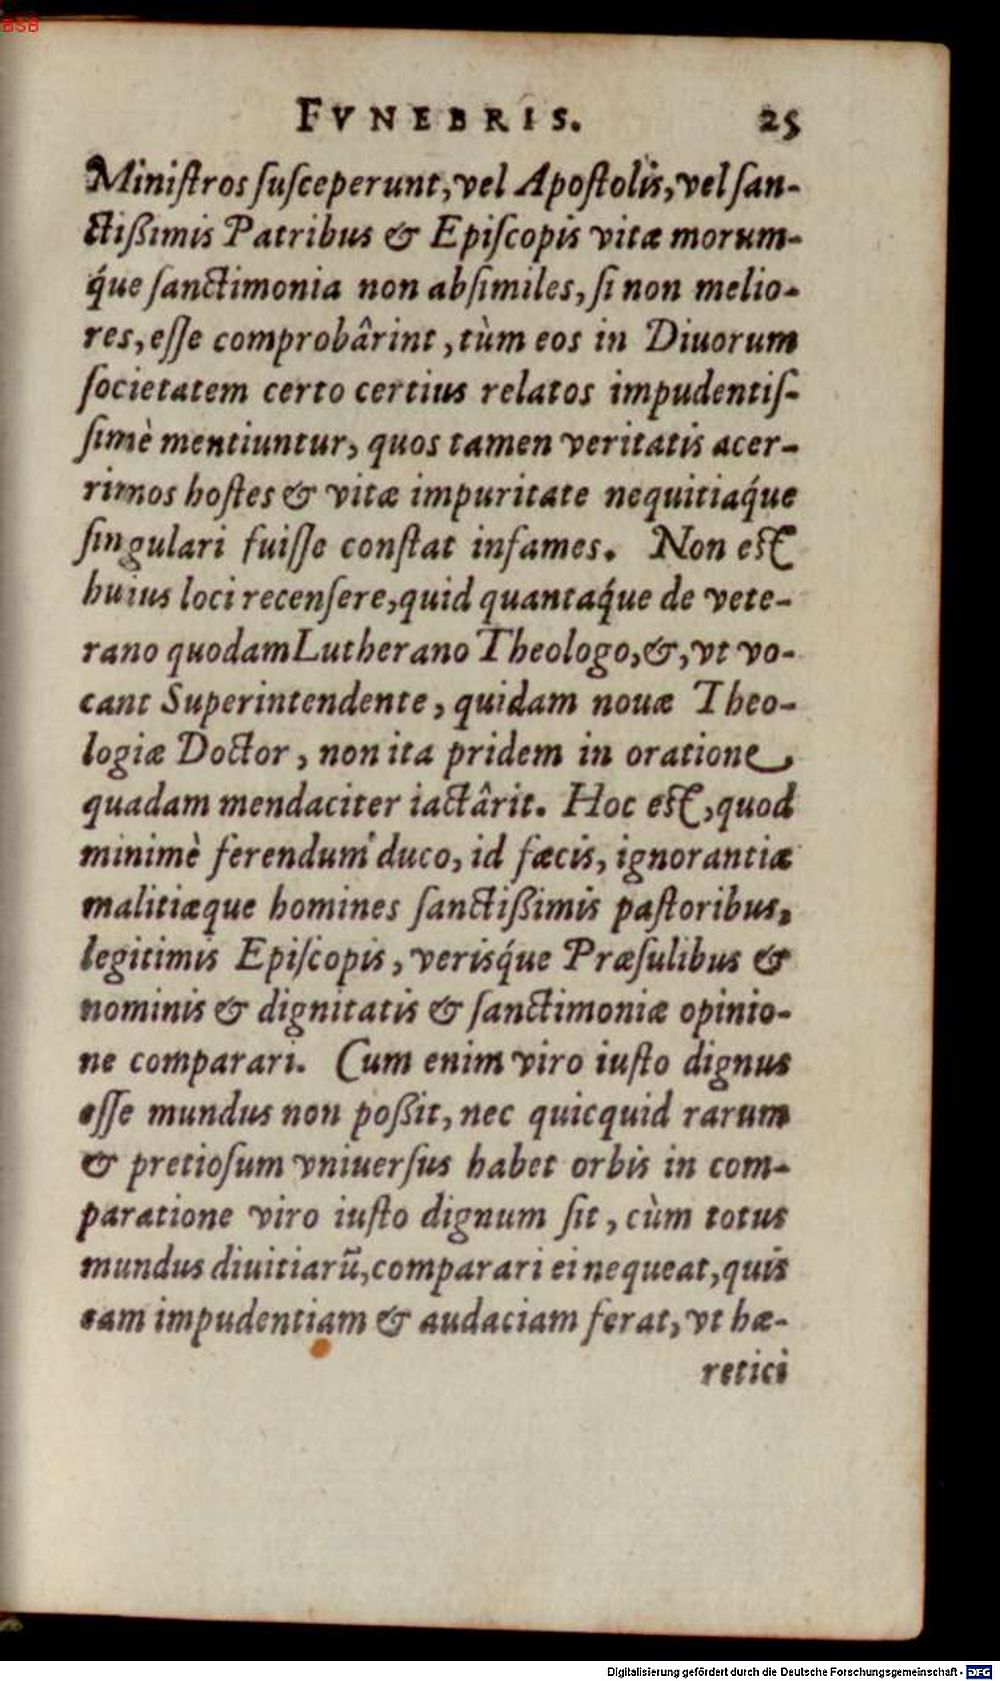 BSB
FVNEBRIS. 25
Miniſtros ſuſceperunt, vel Apoſtolis, vel ſan-
ctißimis Patribus & Epiſcopis vitæ morum-
q́ue ſanctimonia non abſimiles, ſi non melio-
res, eſſe comprobârint, tùm eos in Diuorum
ſocietatem certo certius relatos impudentiſ-
ſimè mentiuntur, quos tamen veritatis acer-
rimos hoſtes & vitæ impuritate nequitiaq́ue
ſingulari fuiſſe conſtat infames. Non eſt
huius loci recenſere, quid quantaq́ue de vete-
rano quodam Lutherano Theologo, &, vt vo-
cant Superintendente, quidam nouæ Theo-
logiæ Doctor, non ita pridem in oratione
quadam mendaciter iactârit. Hoc eſt, quod
minimè ferendum duco, id fæcis, ignorantiæ
malitiæque homines ſanctißimis paſtoribus,
legitimis Epiſcopis, verisq́ue Præſulibus &
nominis & dignitatis & ſanctimoniæ opinio-
ne comparari. Cum enim viro iuſto dignus
eſſe mundus non poßit, nec quicquid rarum
& pretioſum vniuerſus habet orbis in com-
paratione viro iuſto dignum ſit, cùm totus
mundus diuitiarū, comparari ei nequeat, quis
eam impudentiam & audaciam ferat, vt hæ-
retici
Digitalisierung gefördert durch die Deutsche Forschungsgemeinschaft - DFG